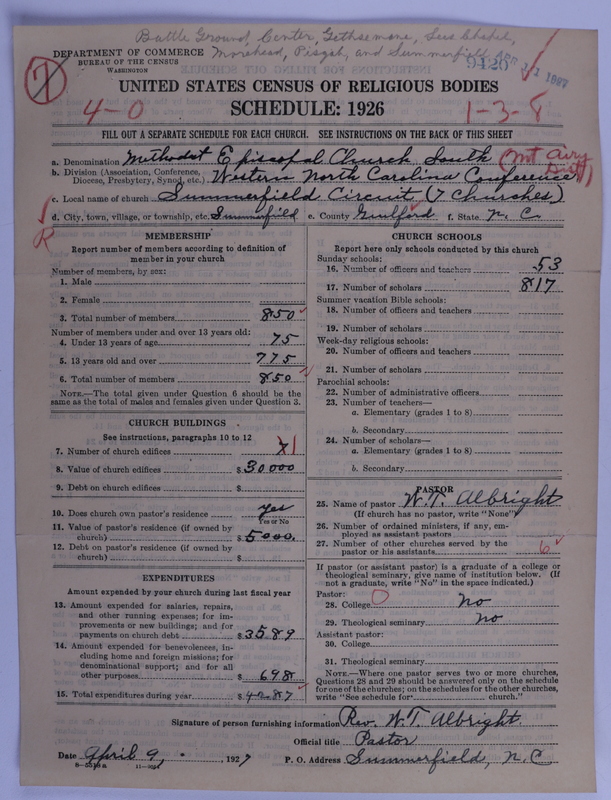 Battle Ground, Center, Gethsemane, Lees Chapel,
Morehead, Pisgah, and Summerfield
7
DEPARTMENT OF COMMERCE
BUREAU OF THE CENSUS
WASHINGTON
9420
UNITED STATES CENSUS OF RELIGIOUS BODIES
4-0 SCHEDULE: 1926 1-3-8
FILL OUT A SEPARATE SCHEDULE FOR EACH CHURCH. SEE INSTRUCTIONS ON THE BACK OF THIS SHEET
a. Denomination Methodist Episcopal Church South (Mt Airy Dist)
b. Division (Association, Conference, Diocese, Presbytery, Synod, etc.) Western North Carolina Conference
c. Local name of church Summerfield Circuit (7 Churches)
d. City, town, village, or township, etc. Summerfield e. County Guilford f. State N. C.
R
MEMBERSHIP
Report number of members according to definition of
member in your church
Number of members, by sex:
1. Male
2. Female
3. Total number of members 850
Number of members under and over 13 years old:
4. Under 13 years of age 75
5. 13 years old and over 775
6. Total number of members 850
NOTE.—The total given under Question 6 should be the
same as the total of males and females given under Question 3.
CHURCH BUILDINGS
See instructions, paragraphs 10 to 12
7. Number of church edifices 7 1
8. Value of church edifices $ 30000
9. Debt on church edifices $
10. Does church own pastor's residence yes
Yes or No
11. Value of pastor's residence (if owned by
church) $ 5000.
12. Debt on pastor's residence (if owned by
church) $
EXPENDITURES
Amount expended by church during last fiscal year
13. Amount expended for salaries, repairs,
and other running expenses; for im-
provements or new buildings; and for
payments on church debt $ 3589
14. Amount expended for benevolences, in-
cluding home and foreign missions; for
denominational support; and for all
other purposes $ 698
15. Total expenditures during year $ 4287
CHURCH SCHOOLS
Report here only schools conducted by this church
Sunday schools:
16. Number of officers and teachers 53
17. Number of scholars 817
Summer vacation Bible schools:
18. Number of officers and teachers
19. Number of scholars
Week-day religious schools:
20. Number of officers and teachers
21. Number of scholars
Parochial schools:
22. Number of administrative officers
23. Number of teachers—
a. Elementary (grades 1 to 8)
b. Secondary
24. Number of scholars—
a. Elementary (grades 1 to 8)
b. Secondary
PASTOR
25. Name of pastor W. T. Albright
(If church has no pastor, write "None")
26. Number of ordained ministers, if any, em-
ployed as assistant pastors
27. Number of other churches served by the
pastor or his assistants 6
If pastor (or assistant pastor) is a graduate of a college or
theological seminary, give name of institution below. (If
not a graduate, write "No" in the space indicated.)
Pastor:
28. College No
29. Theological seminary No
Assistant pastor:
30. College
31. Theological seminary
NOTE.—Where one pastor serves two or more churches,
Questions 28 and 29 should be answered only on the schedule
for one of the churches; on the schedules for the other churches,
write "See schedule for church."
Signature of person furnishing information Rev. W. T. Albright.
Official title Pastor
Date April 9, 1927 P. O. Address Summerfield, N. C.